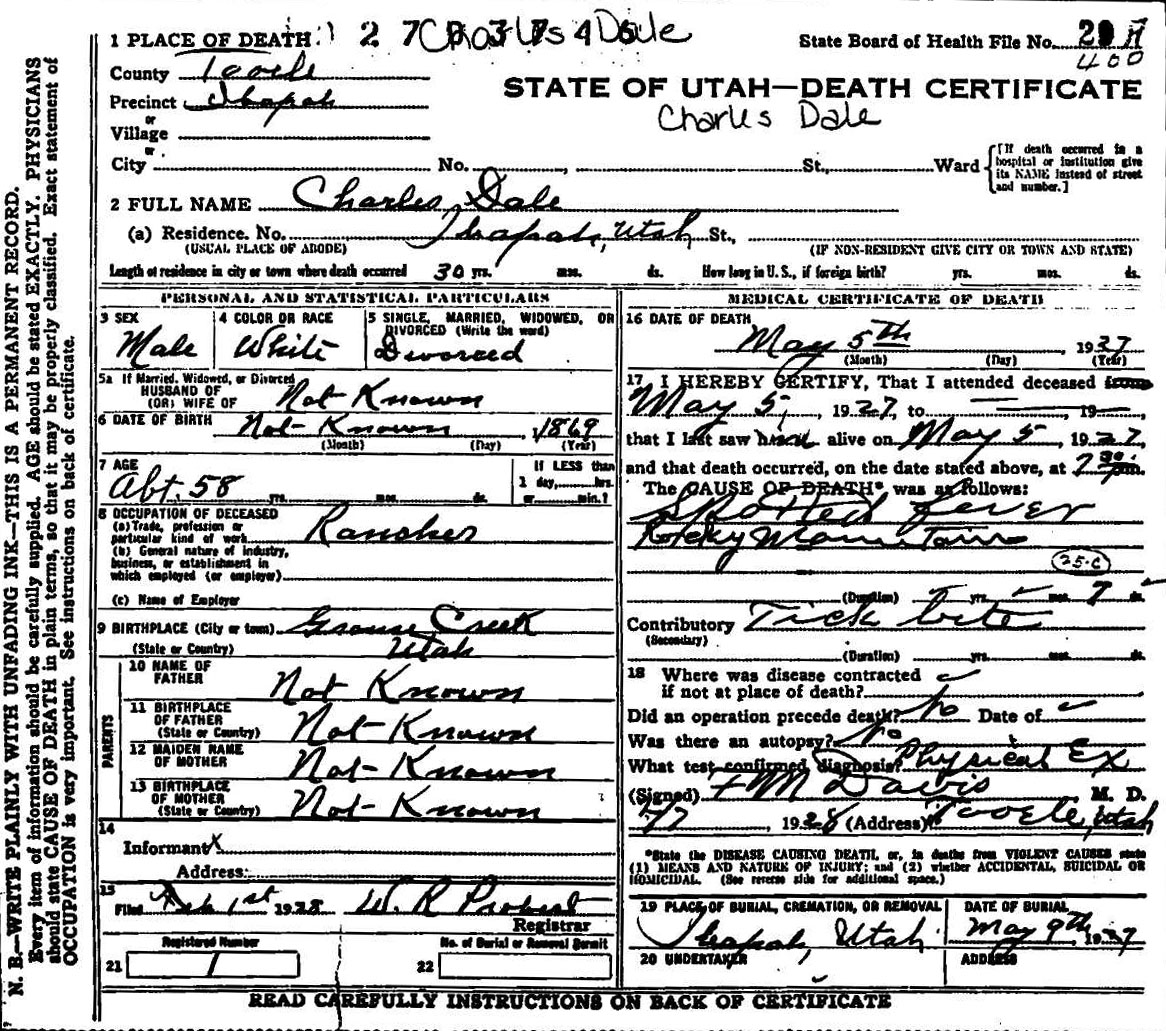 1 PLACE OF DEATH 2 7 0 3 7 4 5 Charles Dale
State Board of Health File No. 400
County Tooele
STATE OF UTAH—DEATH CERTIFICATE
Precinct Ibapah
Charles Dale
or
Village
or
City No. St., Ward
[If death occurred in a hospital or institution give its NAME instead of street and number.]
2 FULL NAME Charles Dale
(a) Residence. No. Ibapah, Utah St.,
(USUAL PLACE OF ABODE) (IF NON-RESIDENT GIVE CITY OR TOWN AND STATE)
Length of residence in city or town where death occurred 30 yrs. mos. ds. How long in U. S., if foreign birth? yrs. mos. ds.
PERSONAL AND STATISTICAL PARTICULARS
3 SEX
Male
4 COLOR OR RACE
White
5 SINGLE, MARRIED, WIDOWED, OR
DIVORCED (Write the word)
Divorced
5a If Married, Widowed, or Divorced
HUSBAND OF
(OR) WIFE OF Not Known
6 DATE OF BIRTH Not Known 1869
(Month) (Day) (Year)
7 AGE
Abt. 58 yrs. mos. ds.
If LESS than
1 day, hrs.
or min.?
8 OCCUPATION OF DECEASED
(a) Trade, profession or
particular kind of work Rancher
(b) General nature of industry,
business, or establishment in
which employed (or employer)
(c) Name of Employer
9 BIRTHPLACE (City or town) Grouse Creek
(State or Country) Utah
PARENTS
10 NAME OF
FATHER Not Known
11 BIRTHPLACE
OF FATHER
(State or Country) Not Known
12 MAIDEN NAME
OF MOTHER Not Known
13 BIRTHPLACE
OF MOTHER
(State or Country) Not Known
14
Informant X
Address:
15
Filed Feb 1st 1928 W. R. Probert
Registrar
Registered Number
21 1
No. of Burial or Removal Permit
22
MEDICAL CERTIFICATE OF DEATH
16 DATE OF DEATH
May 5th 1927
(Month) (Day) (Year)
17 I HEREBY CERTIFY, That I attended deceased from
May 5, 1927, to 19
that I last saw him alive on May 5, 1927,
and that death occurred, on the date stated above, at 7 30 pm.
The CAUSE OF DEATH* was as follows:
Spotted fever
Rocky Mountain
25-C
(Duration) yrs. mos. 7 ds.
Contributory Tick bite
(Secondary)
(Duration) yrs. mos. ds.
18 Where was disease contracted
if not at place of death?
Did an operation precede death? No Date of
Was there an autopsy? No
What test confirmed diagnosis? Physical Ex
(Signed) F M Davis M. D.
1928 (Address) Tooele, Utah
*State the DISEASE CAUSING DEATH, or, in deaths from VIOLENT CAUSES state
(1) MEANS AND NATURE OF INJURY; and (2) whether ACCIDENTAL, SUICIDAL OR
HOMICIDAL. (See reverse side for additional space.)
19 PLACE OF BURIAL, CREMATION, OR REMOVAL
Ibapah, Utah
DATE OF BURIAL
May 9th, 1927
20 UNDERTAKER
ADDRESS
READ CAREFULLY INSTRUCTIONS ON BACK OF CERTIFICATE
N. B.—WRITE PLAINLY WITH UNFADING INK—THIS IS A PERMANENT RECORD.
Every item of information should be carefully supplied. AGE should be stated EXACTLY. PHYSICIANS
should state CAUSE OF DEATH in plain terms, so that it may be properly classified. Exact statement of
OCCUPATION is very important. See instructions on back of certificate.